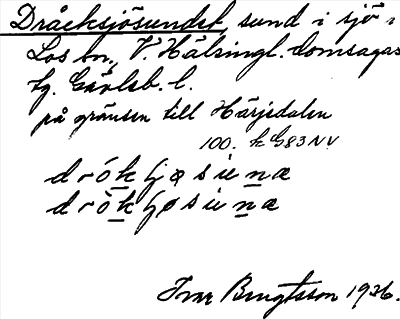 Dråcksjösundet, sund i sjö i
Los sn., V. Hälsingl. domsagas
tg. Gävleb. l.
på gränsen till Härjedalen
100. k G83NV
drókjøsuna
drókjøsuna
Ivar Bengtsson 1936.